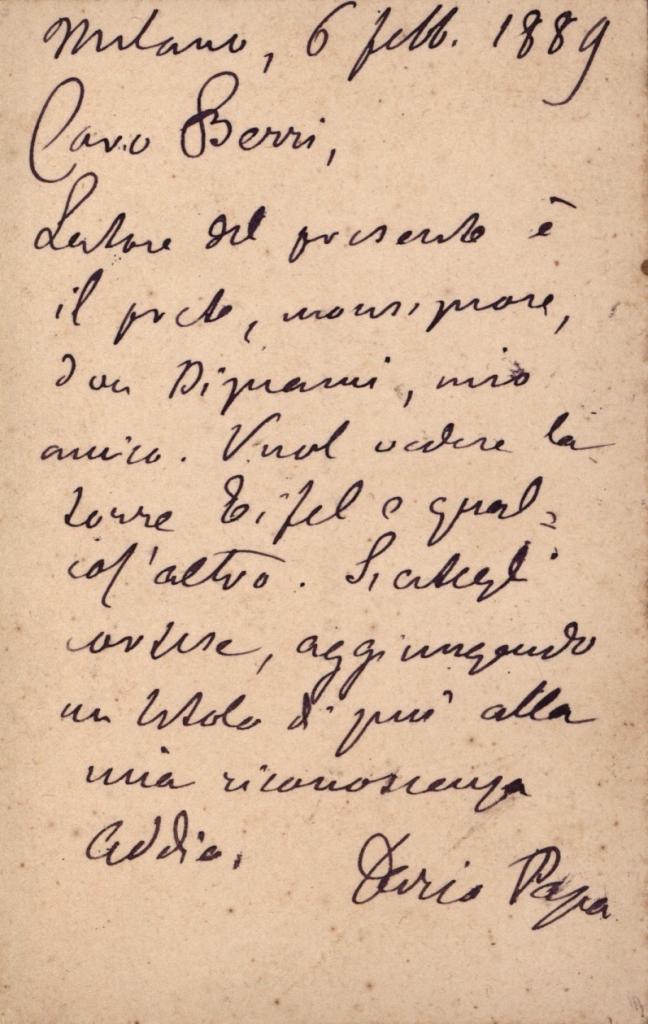 Milano, 6 febb. 1889
Caro Berri,
Latore del presente è
il prete, monsignore,
don Dignami, mio
amico. Vuol vedere la
torre Eifel e qual=
cos'altro. Siategli
cortese, aggiungendo
un titolo di più alla
mia riconoscenza
Addio.
Dario Papa